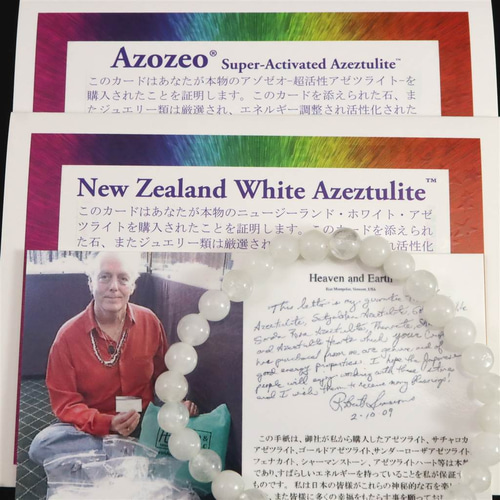 Azozeo® Super-Activated Azeztulite™
このカードはあなたが本物のアゾゼオ-超活性アゼツライト-を
購入されたことを証明します。このカードを添えられた石、ま
たジュエリー類は厳選され、エネルギー調整され活性化された
New Zealand White Azeztulite™
このカードはあなたが本物のニュージーランド・ホワイト・アゼ
ツライトを購入されたことを証明します。このカードを添えられ
た石、またジュエリー類は厳選され
活性化
Heaven and Earth
This letter is my guarantee
Azeztulite, Satyaloka Azeztulite,
Azeztulite, Phenacite
and Azeztulite Hearts which your
has purchased from me are genuine and of
good energy properties. I hope the Japanese
people will enjoy working with these
and I wish them to receive many blessings!
Robert Simmons
2-10-09
この手紙は、御社が私から購入したアゼツライト、サチャロカ
アゼツライト、ゴールドアゼツライト、サンダーローザアゼツライト
フェナカイト、シャーマンストーン、アゼツライトハート等は本
であり、すばらしいエネルギーを持っていることを私が保証
ものです。私は日本の皆様がこれらの神秘的な石を
、また皆様に多くの幸福をもたらす事を願っており